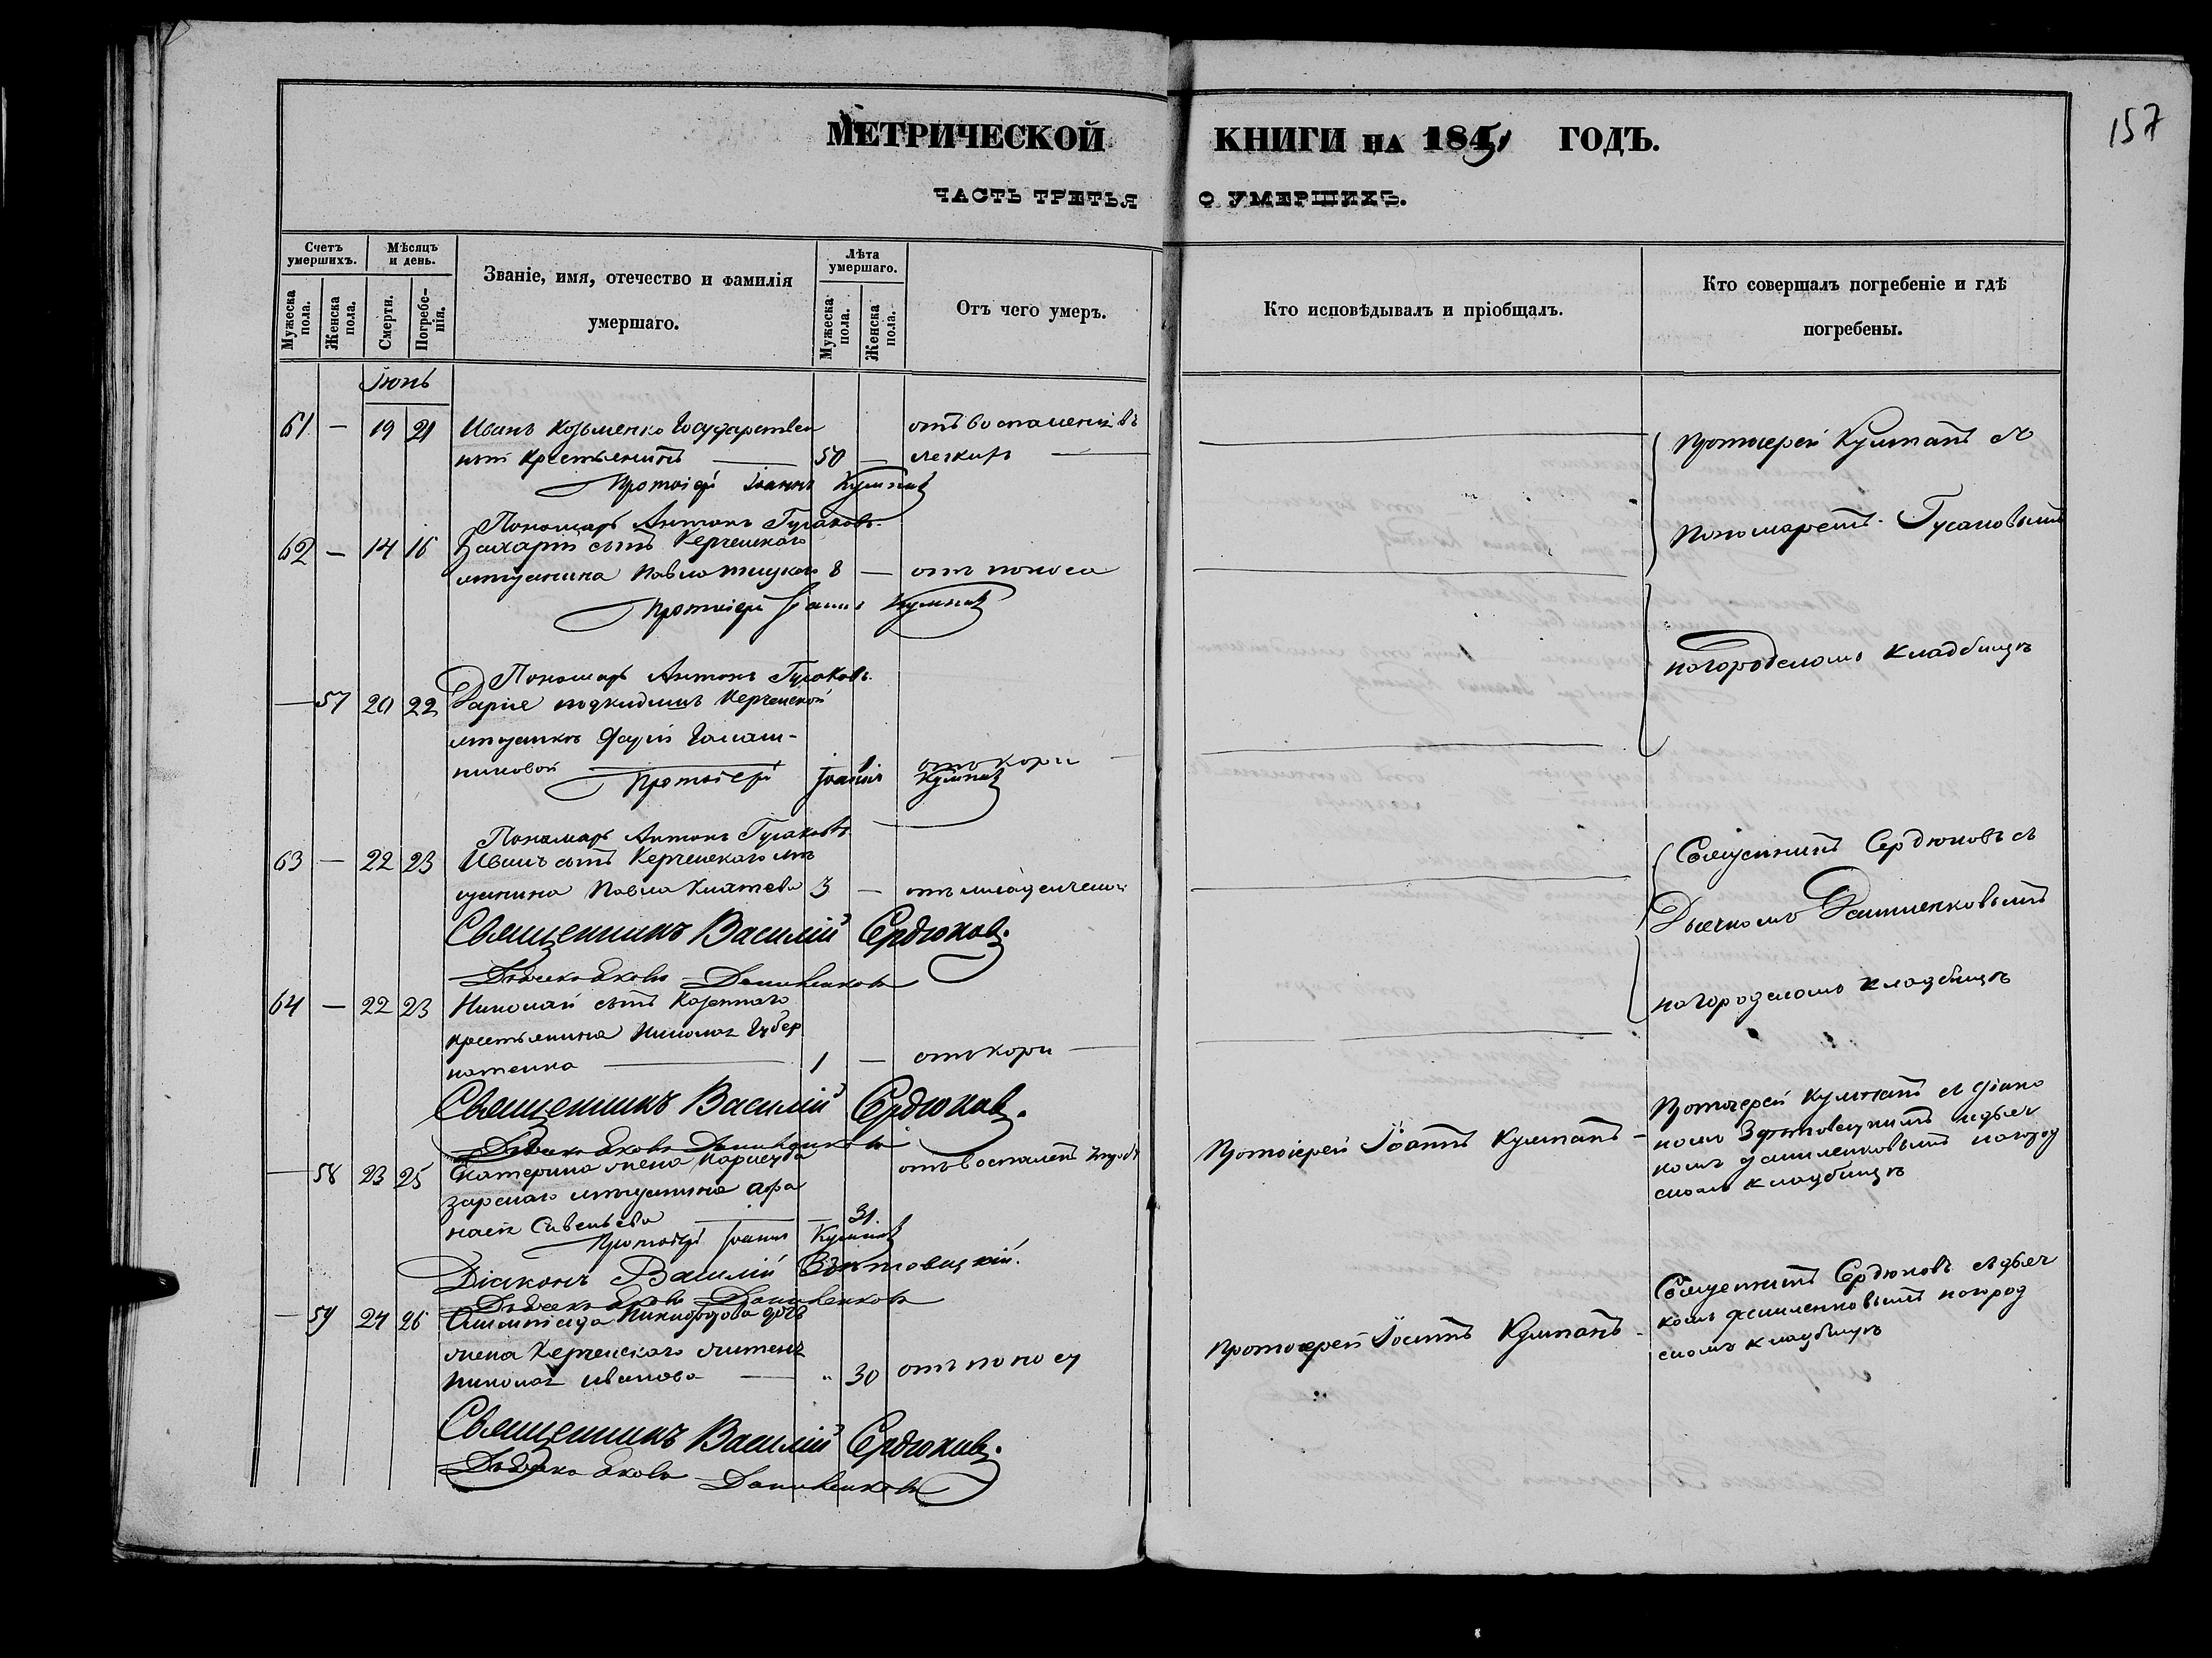 157
МЕТРИЧЕСКОЙ КНИГИ НА 1851 ГОДЪ.
ЧАСТЬ ТРЕТЬЯ О УМЕРШИХЪ.
Счетъ умершихъ.
Мѣсяцъ и день.
Званіе, имя, отечество и фамилія умершаго.
Лѣта умершаго.
Отъ чего умеръ.
Кто исповѣдывалъ и пріобщалъ.
Кто совершалъ погребеніе и гдѣ погребены.
Мужеска пола.
Женска пола.
Смерти.
Погребенія.
Мужеска пола.
Женска пола.
Іюнь
61 — 19 21 Иванъ Козьменко Государствен отъ воспаленія въ
ный крестьянинъ — 50 — легкихъ —
Протоіерей Іоаннъ Кумпанъ
Протоіерей Кумпанъ съ
Пономарь Антонъ Гусаковъ.
Пономаремъ Гусаковымъ
62 — 14 16 Захарій сынъ Керченскаго
мѣщанина Павла 8 — отъ поноса
Протоіерей Іоаннъ Кумпанъ
на городскомъ кладбищѣ
Пономарь Антонъ Гусаковъ.
— 57 20 22 Дарія подкидышъ Керченской
мѣщанки
никовой — 1 отъ кори
Протоіерей Іоаннъ Кумпанъ
Пономарь Антонъ Гусаковъ
63 — 22 23 Иванъ сынъ Керченскаго мѣ
щанина Павла 3 — отъ младенческой
Священникъ Сердюковъ съ
Дьячкомъ Даниленковымъ
Священникъ Василій Сердюковъ.
Дьячекъ Яковъ Даниленковъ
на городскомъ кладбищѣ
64 — 22 23 Николай сынъ Казеннаго
крестьянина Николая Губер
натенка — 1 — отъ кори —
Священникъ Василій Сердюковъ.
Дьячекъ Яковъ Даниленковъ
— 58 23 25 Екатерина жена Карасуба отъ воспаленія
зарскаго мѣщанина Афа
насія Савельева — — 31.
Протоіерей Іоаннъ Кумпанъ
Протоіерей Іоаннъ Кумпанъ —
Протоіерей Кумпанъ съ діако
номъ и дьяч
комъ Даниленковымъ на город
скомъ кладбищѣ
Діаконъ Василій
Дьячекъ Яковъ Даниленковъ
— 59 24 26 Олимпіада Никифорова дочь
жена Керченскаго жителя
Николая Иванова — „ 30 отъ поносу
Протоіерей Іоаннъ Кумпанъ —
Священникъ Сердюковъ съ дьяч
комъ Даниленковымъ на город
скомъ кладбищѣ
Священникъ Василій Сердюковъ.
Дьячекъ Яковъ Даниленковъ